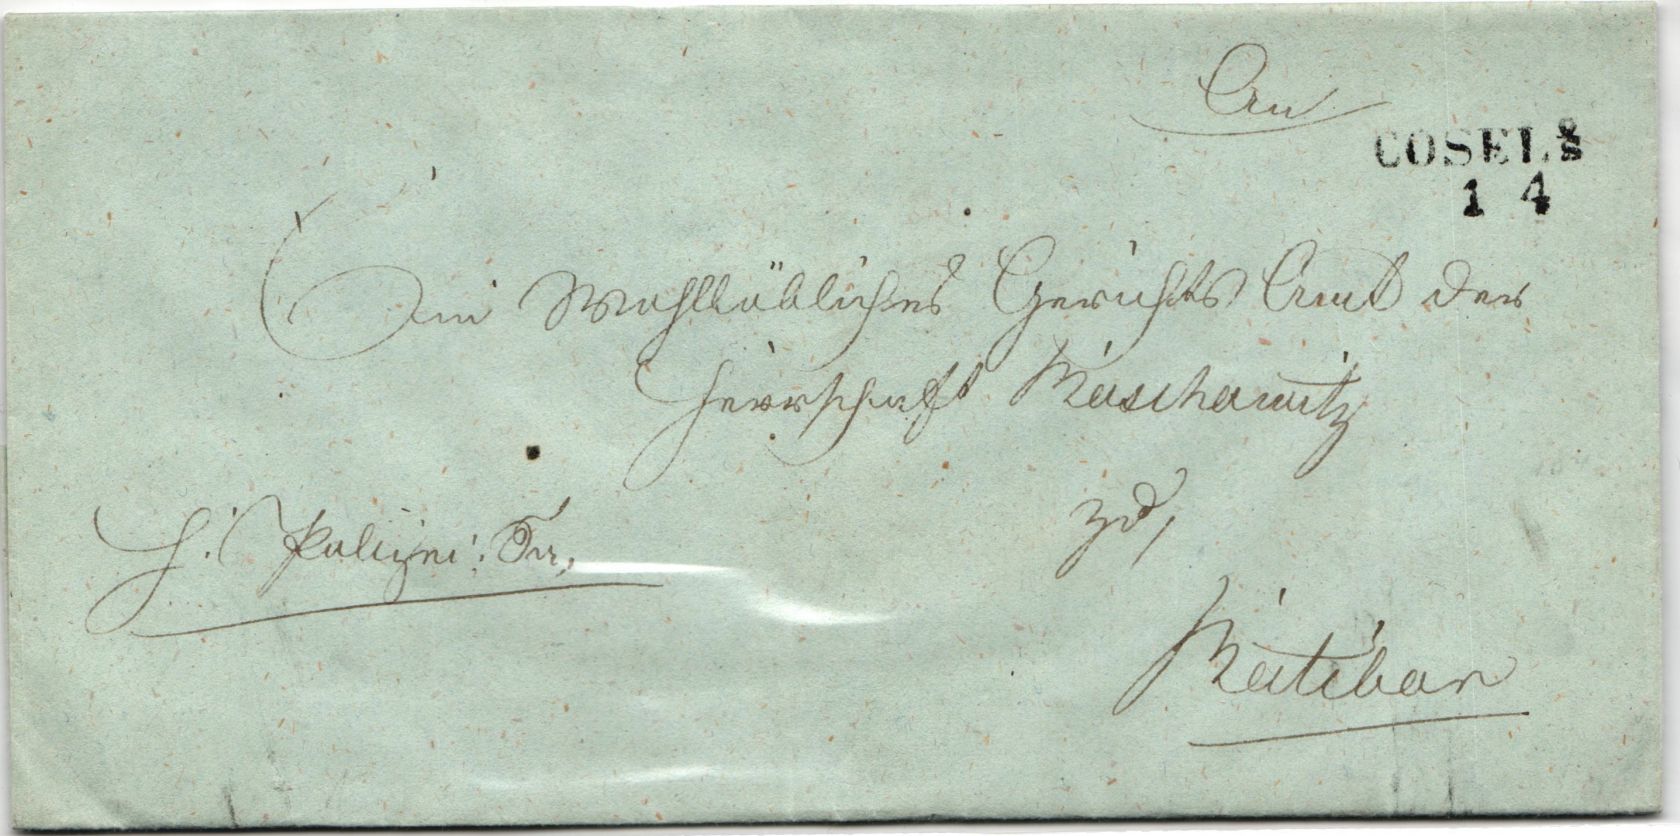 An
COSEL
1 4
Ein Wohllöbliches Gerichts Amt der
Herrschaft Raschowitz
zu,
Ratibor
H: Polizei: